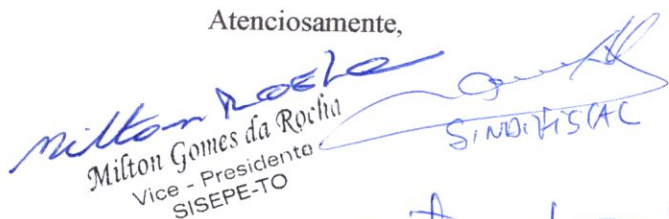 Atenciosamente,
Milton Rocha
Milton Gomes da Rocha
Vice - Presidente
SISEPE-TO
SINDIFISCAL